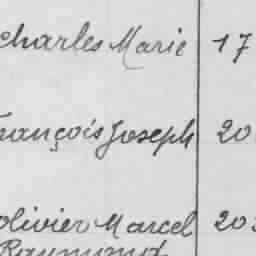 Charles Marie 17
François Joseph 20
Olivier Marcel 20
Raymond